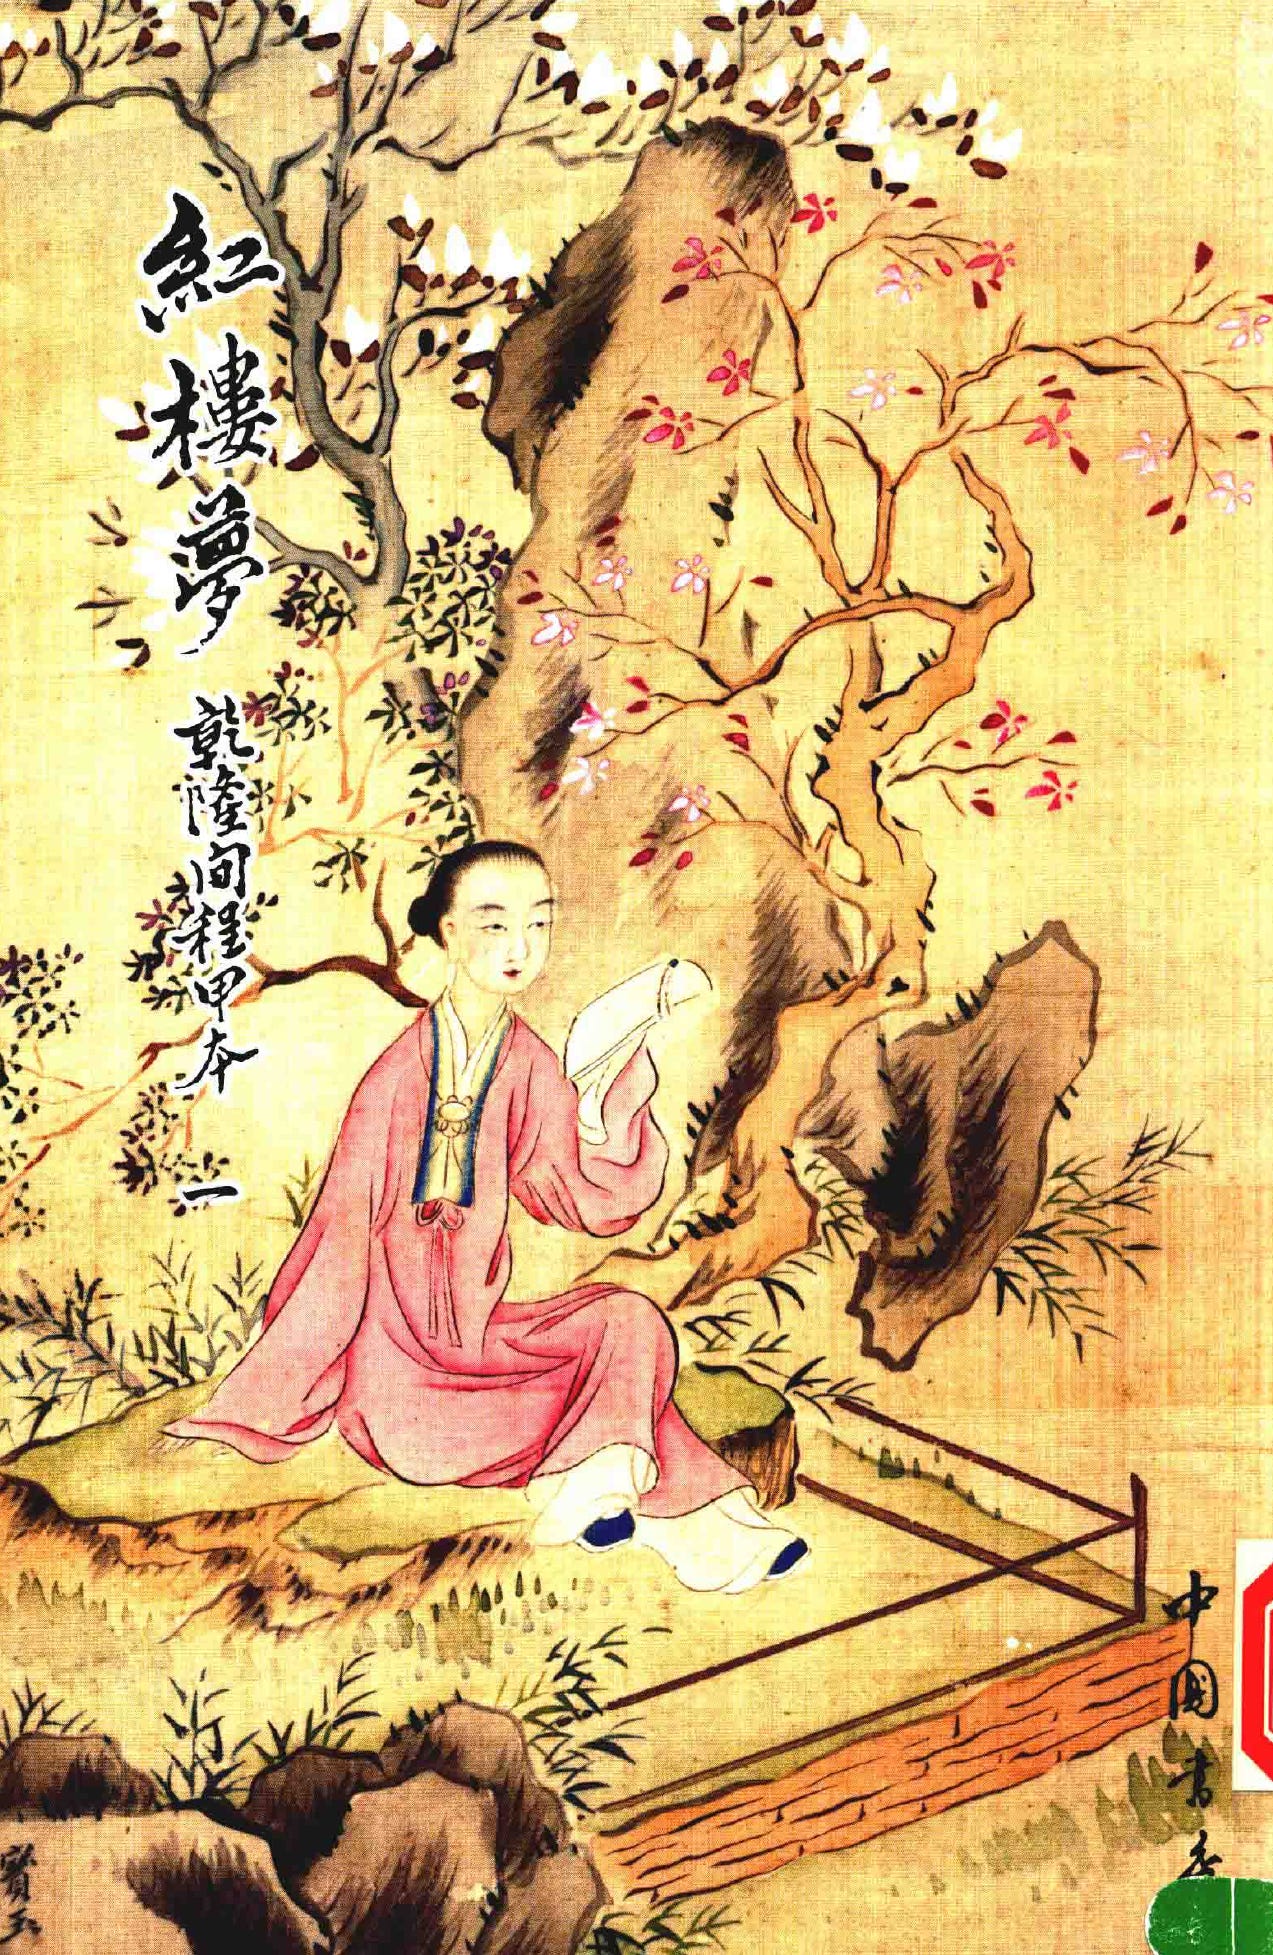 紅樓夢
乾隆间程甲本
一
中國書
寳玉